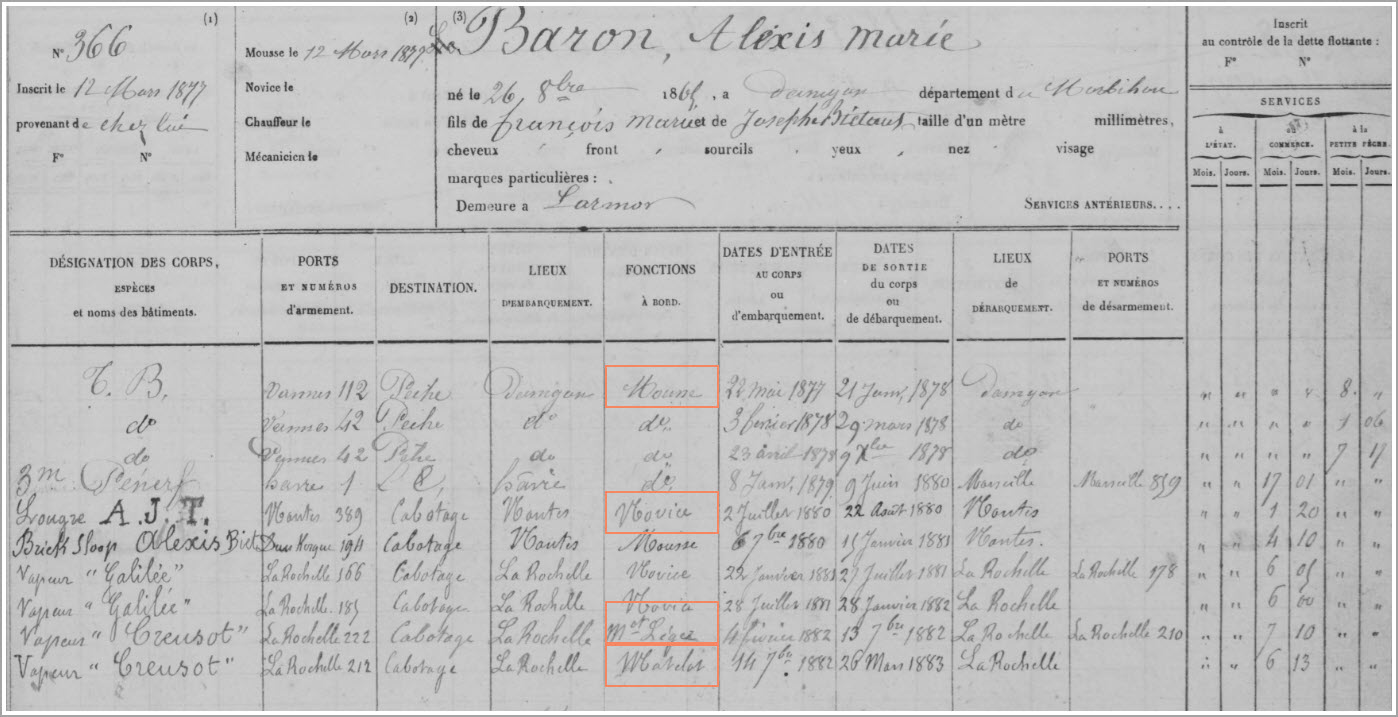 (1) (2) (3)
N° 366
Inscrit le 12 Mars 1877
provenant de chez lui
F° N°
Mousse le 12 Mars 1877
Novice le
Chauffeur le
Mécanicien le
Baron, Alexis marie
né le 26 8bre 186 , a Damgan département du Morbihan
fils de françois marie et de Josephe taille d'un mètre millimètres,
cheveux , front , sourcils , yeux , nez , visage
marques particulières :
Demeure a Larmor SERVICES ANTÉRIEURS. . . .
Inscrit
au contrôle de la dette flottante :
F° N°
SERVICES
à L'ÉTAT. au COMMERCE. à la PETITE PÊCHE.
Mois. Jours. Mois. Jours. Mois. Jours.
DÉSIGNATION DES CORPS, ESPÈCES et noms des bâtiments.
PORTS ET NUMÉROS d'armement.
DESTINATION.
LIEUX D'EMBARQUEMENT.
FONCTIONS À BORD.
DATES D'ENTRÉE AU CORPS ou d'embarquement.
DATES DE SORTIE du corps ou de débarquement.
LIEUX de DÉBARQUEMENT.
PORTS ET NUMÉROS de désarmement.
T. B. Vannes 112 Pêche Damgan Mousse 22 mai 1877 21 Janv. 1878 Damgan " " " " 8 "
do Vannes 42 Pêche do do 3 février 1878 29 mars 1878 do " " " " 1 06
do Vannes 42 Pêche do do 23 avril 1878 9 Xbre 1878 do " " " " 7 17
3m Pénerf havre 1 L C, havre do 8 Janv. 1879 9 Juin 1880 Marseille Marseille 859 " " 17 01 " "
Lougre A. J. T. Nantes 389 Cabotage Nantes Novice 2 Juillet 1880 22 Août 1880 Nantes " " 1 20 " "
Brick Sloop Alexis Dunkerque 194 Cabotage Nantes Mousse 6 7bre 1880 15 Janvier 1881 Nantes. " " 4 10 " "
Vapeur "Galilée" La Rochelle 166 Cabotage La Rochelle Novice 22 Janvier 1881 27 Juillet 1881 La Rochelle La Rochelle 178 " " 6 05 " "
Vapeur "Galilée" La Rochelle 185 Cabotage La Rochelle Novice 28 Juillet 1881 28 Janvier 1882 La Rochelle " " 6 00 " "
Vapeur "Creusot" La Rochelle 222 Cabotage La Rochelle Mot Léger 4 février 1882 13 7bre 1882 La Rochelle La Rochelle 210 " " 7 10 " "
Vapeur "Creusot" La Rochelle 212 Cabotage La Rochelle Matelot 14 7bre 1882 26 Mars 1883 La Rochelle " " 6 13 " "